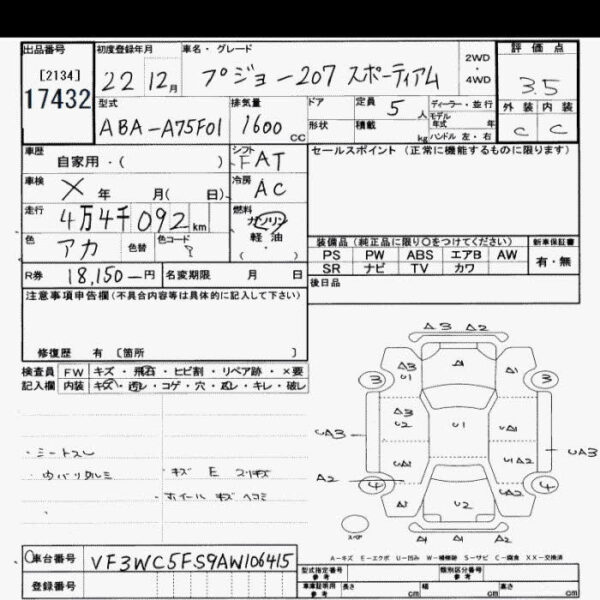 出品番号 初度登録年月 車名・グレード 2WD ・ 4WD 評価点
[2134] 17432 22年12月 プジョー207 スポーティアム 3.5
型式 排気量 ドア 定員 5人 ディーラー・並行 外装 内装
ABA-A75F01 1600cc 形状 積載 kg モデル年式 年 ハンドル 左・右 C C
車歴 自家用・( ) シフト FAT セールスポイント (正常に機能するものに限ります)
車検 X 年 月( 日) 冷房 AC
走行 4万4千092km 燃料 ガソリン 軽油 ・( )
色 アカ 色替 色コード ?
装備品(純正品に限り○をつけてください) 新車保証書
PS PW ABS エアB AW 有・無
SR ナビ TV カワ
R券 18,150-円 名変期限 月 日 後日品
注意事項申告欄(不具合内容等は具体的に記入して下さい)
修復歴 有 [箇所 ]
検査員 FW キズ・飛石・ヒビ割・リペア跡・×要
記入欄 内装 キズ・汚レ・コゲ・穴・凪レ・キレ・破レ
・シートスレ
キズ E コスリキズ
・ホイールキズ ヘコミ
A3 A2
A3 U1 A1 A1
3 3
A3 U2 U1 UA1
UA3 UA3
UA1 UA1
A2 4 4 A2
A3 U2 A1
A1 A1 A2
スペア
A-キズ E-エクボ U-凹み W-補修跡 S-サビ C-腐食 XX-交換済
車台番号 VF3WC5FS9AW106415
型式指定番号 参考 類別区分番号 参考
登録番号 車車証印刷 参考 長さ cm 幅 cm 高さ cm